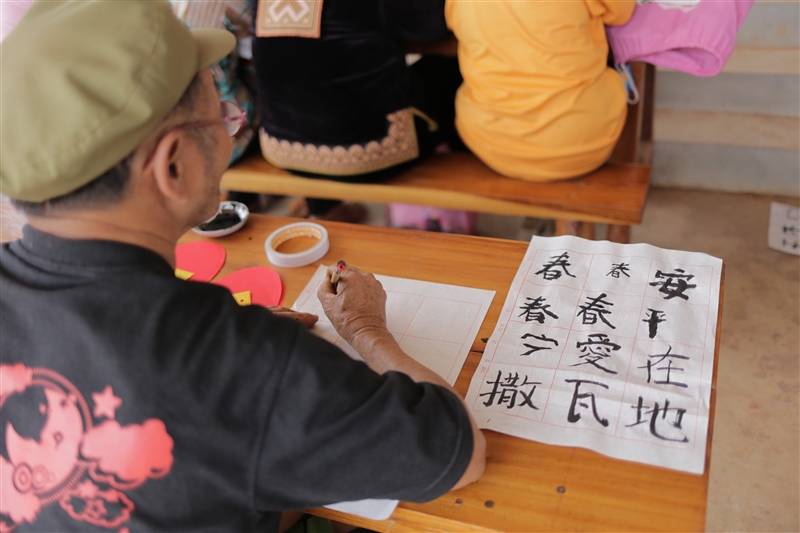 安平在地
春春愛瓦
春春撒